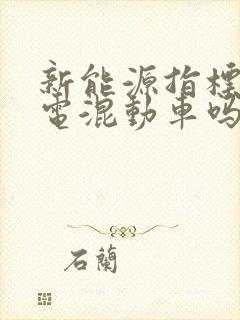 新能源指標
電混動車吗
石蘭